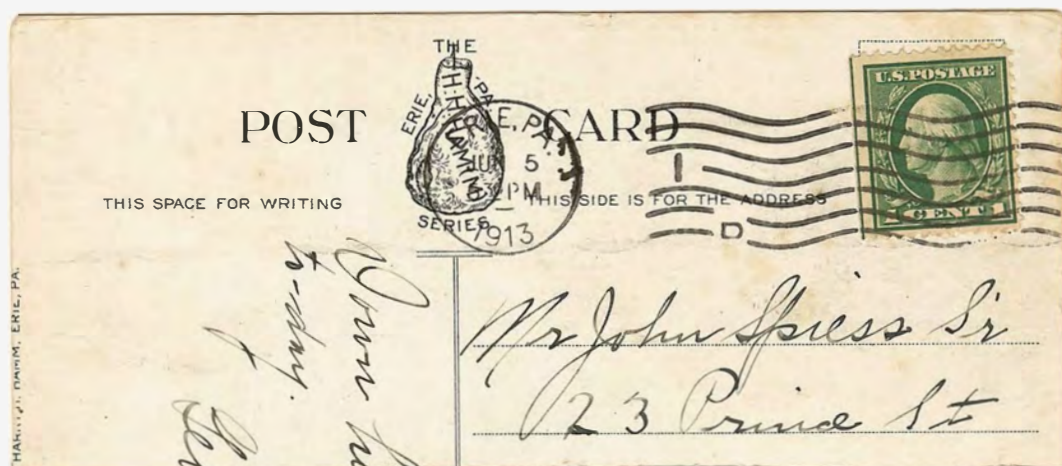 THE
H.H. HAMM
ERIE, PA.
SERIES
POST CARD
ERIE, PA.
JUN 5
PM
1913
1
D
U.S. POSTAGE
1 CENT 1
THIS SPACE FOR WRITING
THIS SIDE IS FOR THE ADDRESS
Mr John Spiess Sr
23 Prince St
to-day.
HAMM, ERIE, PA.